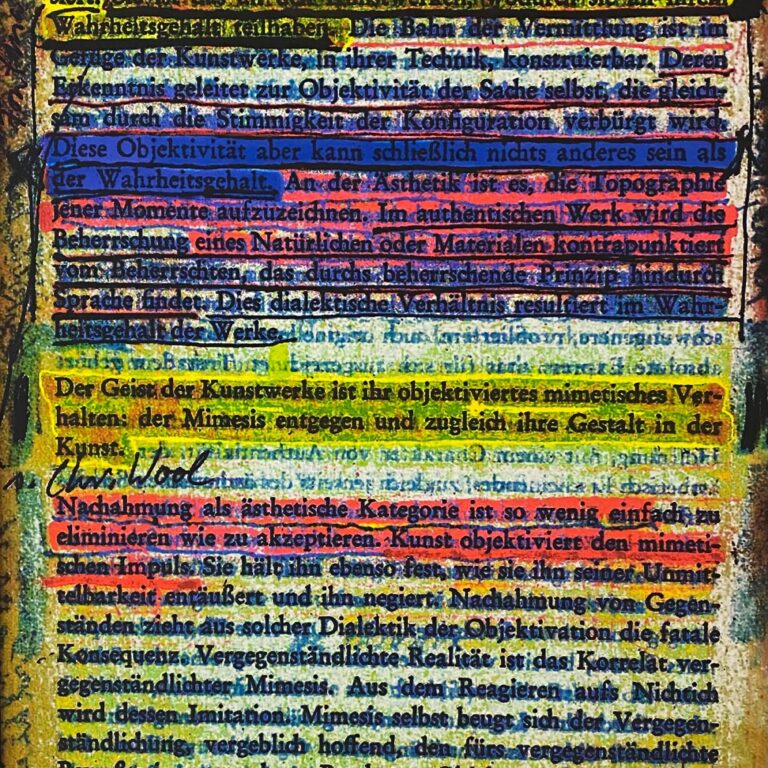 Wahrheitsgehalt teilhaben. Die Bahn der Vermittlung ist im
Gefüge der Kunstwerke, in ihrer Technik, konstruierbar. Deren
Erkenntnis geleitet zur Objektivität der Sache selbst, die gleich-
sam durch die Stimmigkeit der Konfiguration verbürgt wird.
Diese Objektivität aber kann schließlich nichts anderes sein als
der Wahrheitsgehalt. An der Ästhetik ist es, die Topographie
jener Momente aufzuzeichnen. Im authentischen Werk wird die
Beherrschung eines Natürlichen oder Materialen kontrapunktiert
vom Beherrschten, das durchs beherrschende Prinzip hindurch
Sprache findet. Dies dialektische Verhältnis resultiert im Wahr-
heitsgehalt der Werke.
Der Geist der Kunstwerke ist ihr objektiviertes mimetisches Ver-
halten: der Mimesis entgegen und zugleich ihre Gestalt in der
Kunst.
Wool
Nachahmung als ästhetische Kategorie ist so wenig einfach zu
eliminieren wie zu akzeptieren. Kunst objektiviert den mimeti-
schen Impuls. Sie hält ihn ebenso fest, wie sie ihn seiner Unmit-
telbarkeit entäußert und ihn negiert. Nachahmung von Gegen-
ständen zieht aus solcher Dialektik der Objektivation die fatale
Konsequenz. Vergegenständlichte Realität ist das Korrelat ver-
gegenständlichter Mimesis. Aus dem Reagieren aufs Nichtich
wird dessen Imitation. Mimesis selbst beugt sich der Vergegen-
ständlichung, vergeblich hoffend, den fürs vergegenständlichte